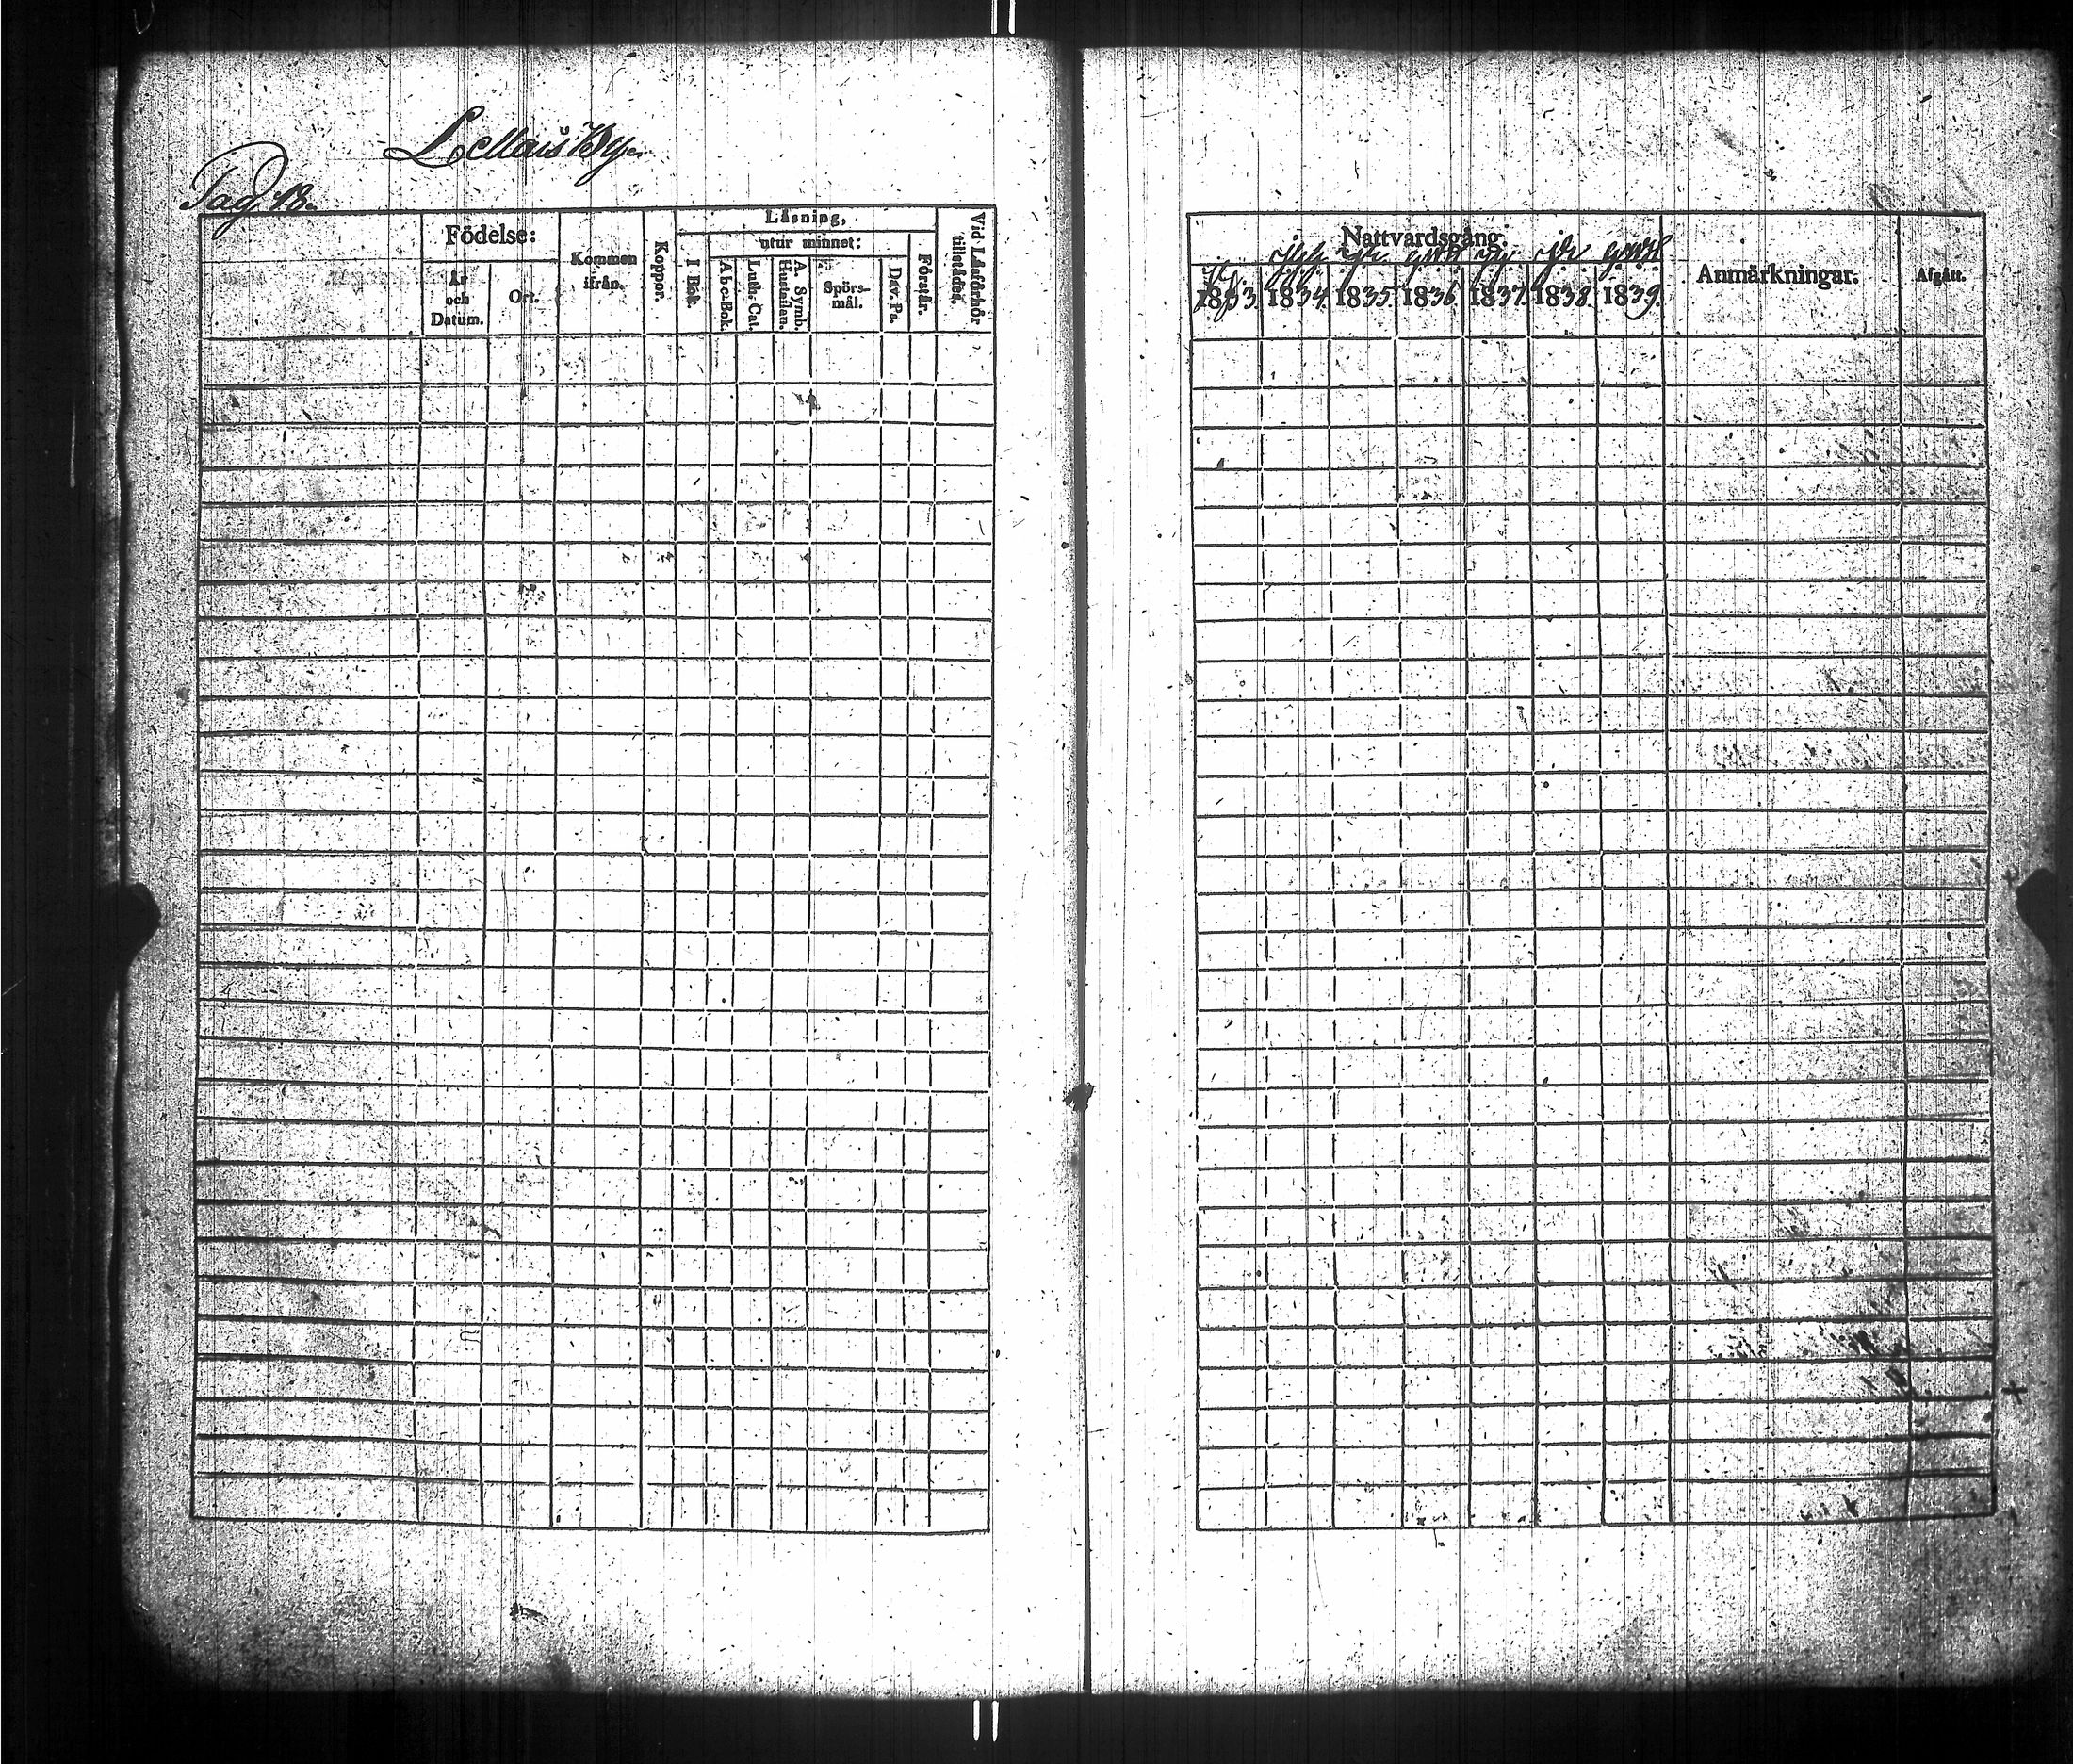 Lellais By.
Pag. 18.
Födelse:
År och Datum.
Ort.
Kommen ifrån.
Koppor.
Läsning,
I Bok.
utur minnet:
Abc-Bok.
Luth. Cat.
A. Symb. Hustaflan.
Spörs-mål.
Dav. Ps.
Förstår.
Vid Läsförhör tillstädes.
Nattvardsgång.
1833. 1834. 1835. 1836. 1837. 1838. 1839.
Anmärkningar.
Afgått.